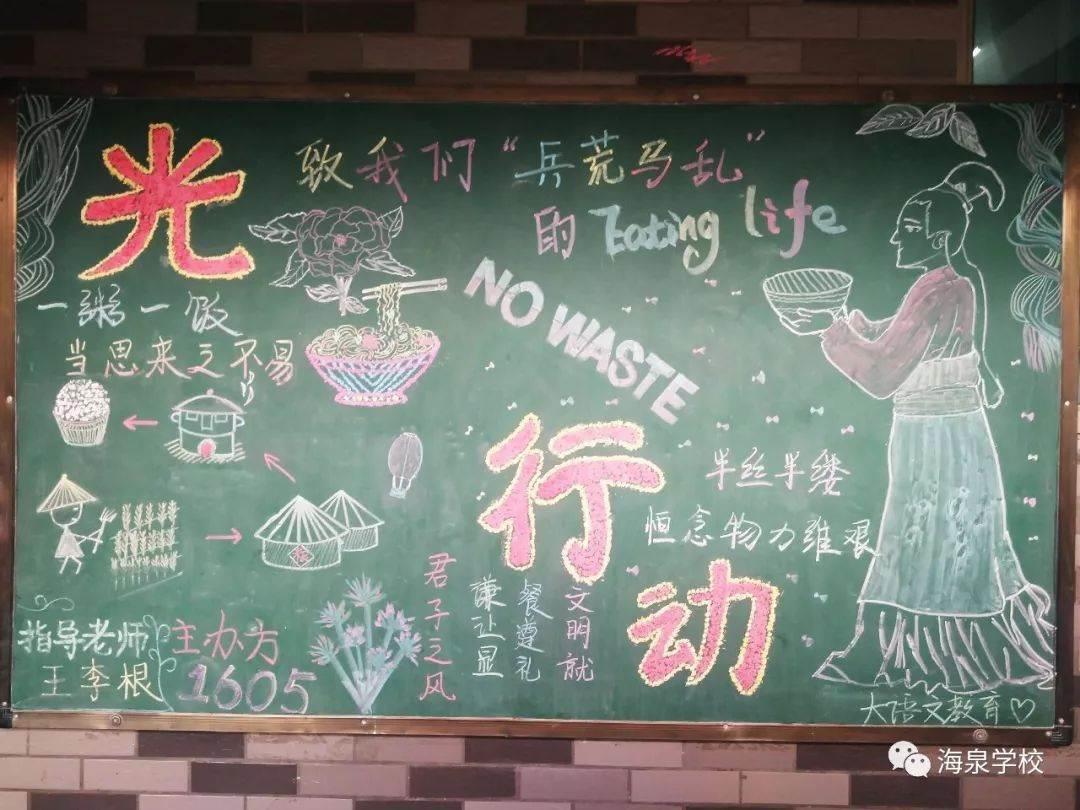 光
致我们“兵荒马乱”
的 Eating life
一粥一饭
当思来之不易
NO WASTE
行
动
半丝半缕
恒念物力维艰
文明就
餐遵礼
谦让显
君子之风
指导老师
王李根
主办方
1605
大语文教育♡
海泉学校